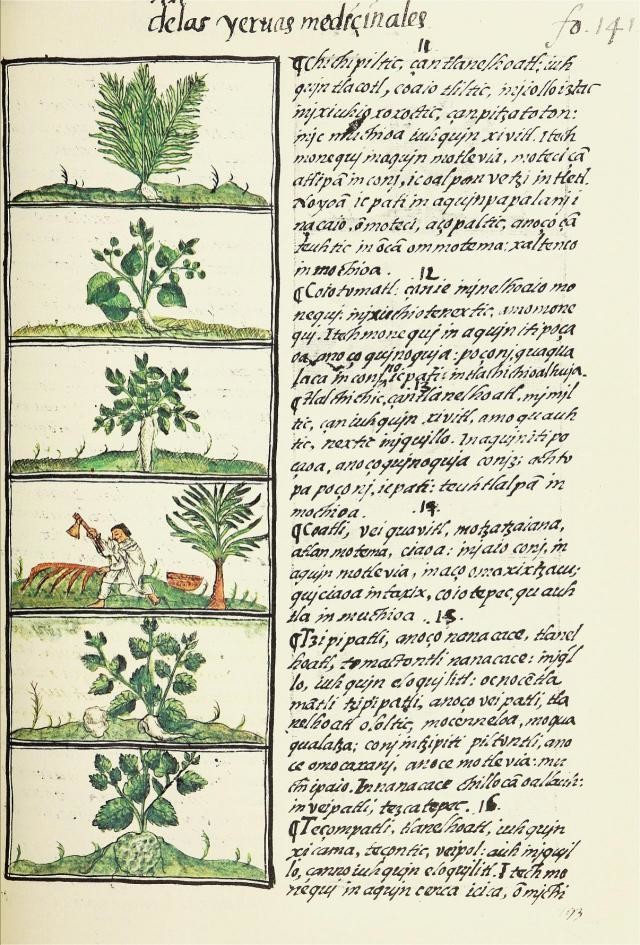 de las yeruas medicinales
fo. 141
11
¶ Chichipiltic, çan tlanelhoatl: iuh
quin tlacotl, coaio tliltic, injiollo iztac
injxiuhio xoxoctic, çan pitzatoton:
mjc muchioa iuhqujn xivitl. Itech
monequj in aqujn motlevia, moteci çã
atl ipã in conj, ic oalpan vetzi in tletl.
No yoã ic pati in aqujn ya palanj i
nacaio, õmoteci, aço paltic, anoço çã
teuhtic in õcã ommotema: xaltenco
in mochioa.
12
¶ Coiotomatl: çan ie injnelhoaio mo
nequj: injxiuhio tenextic, amo mone
quj. Itech monequj in aqujn itipoça
oa, anoço qujnoquja: poçonj, quaqua
laca in conj, ic pati: in tlachichioalhuja.
13
¶ Tlalchichic, çan tlanelhoatl, mjmjl
tic, çan iuhqujn xivitl, amo quauh
tic, nextic injqujllo. In aqujn iti po
çaoa, anoço qujnoquja conj: achto
pa poçonj, ic pati: teuhtlalpã in
mochioa.
14
¶ Coatli, vei quavitl, motzatzaiana,
atlan motema, ciaoa: injaio conj, in
aqujn motlevia, in aço omaxixtzacu;
qujciaoa intaxix, coiotepec, quauh
tla in muchioa
15.
¶ Tzipipatli, anoço nanacace, tlanel
hoatl, tomactontli nanacace: injqujl
lo, iuhqujn eloqujlitl: oc no cẽtla
mãtli tzipipatli, anoço vei patli, tla
nelhoatl ololtic, mocenneloa, moqua
qualatza: conj in tzipiti piltontli, ano
ce omocaxanj, anoce motlevia: mu
chipaio. In nanacace chillocã oallauh:
in vei patli, tezcatepec.
16.
¶ Tecompatli, tlanelhoatl, iuhqujn
xicama, tecontic, veipol: auh injqujl
lo, çanno iuhqujn eloqujlitl. Itech mo
nequj in aqujn cenca icica, õmichi
193